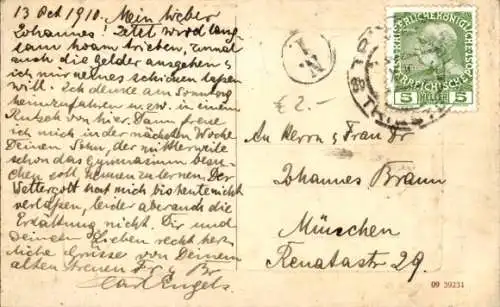 13 Oct 1910. Mein lieber
Johannes! Jetzt wird lang-
sam hoam trieben, zumal
auch die Gelder ausgehen &
ich nur neues schicken lassen
will. Ich denke am Sonntag
heimzufahren u. zw. in einem
Rutsch von hier. Dann freue
ich mich in der nächsten Woche
Deinen Sohn, der mittlerweile
schon das Gymnasium besu-
chen soll, kennen zu lernen. Der
Wettergott hat mich bis heute nicht
verlassen, leider aber auch die
Erkältung nicht. Dir und
Deinen Lieben recht herz-
liche Grüsse von Deinem
alten treuen Fr & Br
Carl Engels
N
£ 2.-
KAISERLICHE KÖNIGLICHE
ÖSTERREICHISCHE
5 HELLER 5
An Herrn & Frau Gr
Johannes Braun
München
Renatastr 29.
09 59231